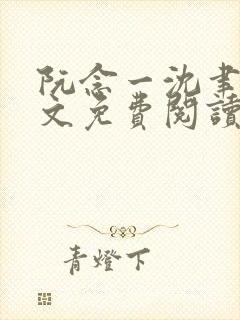 阮念一沈聿
文免费閱讀
青燈下